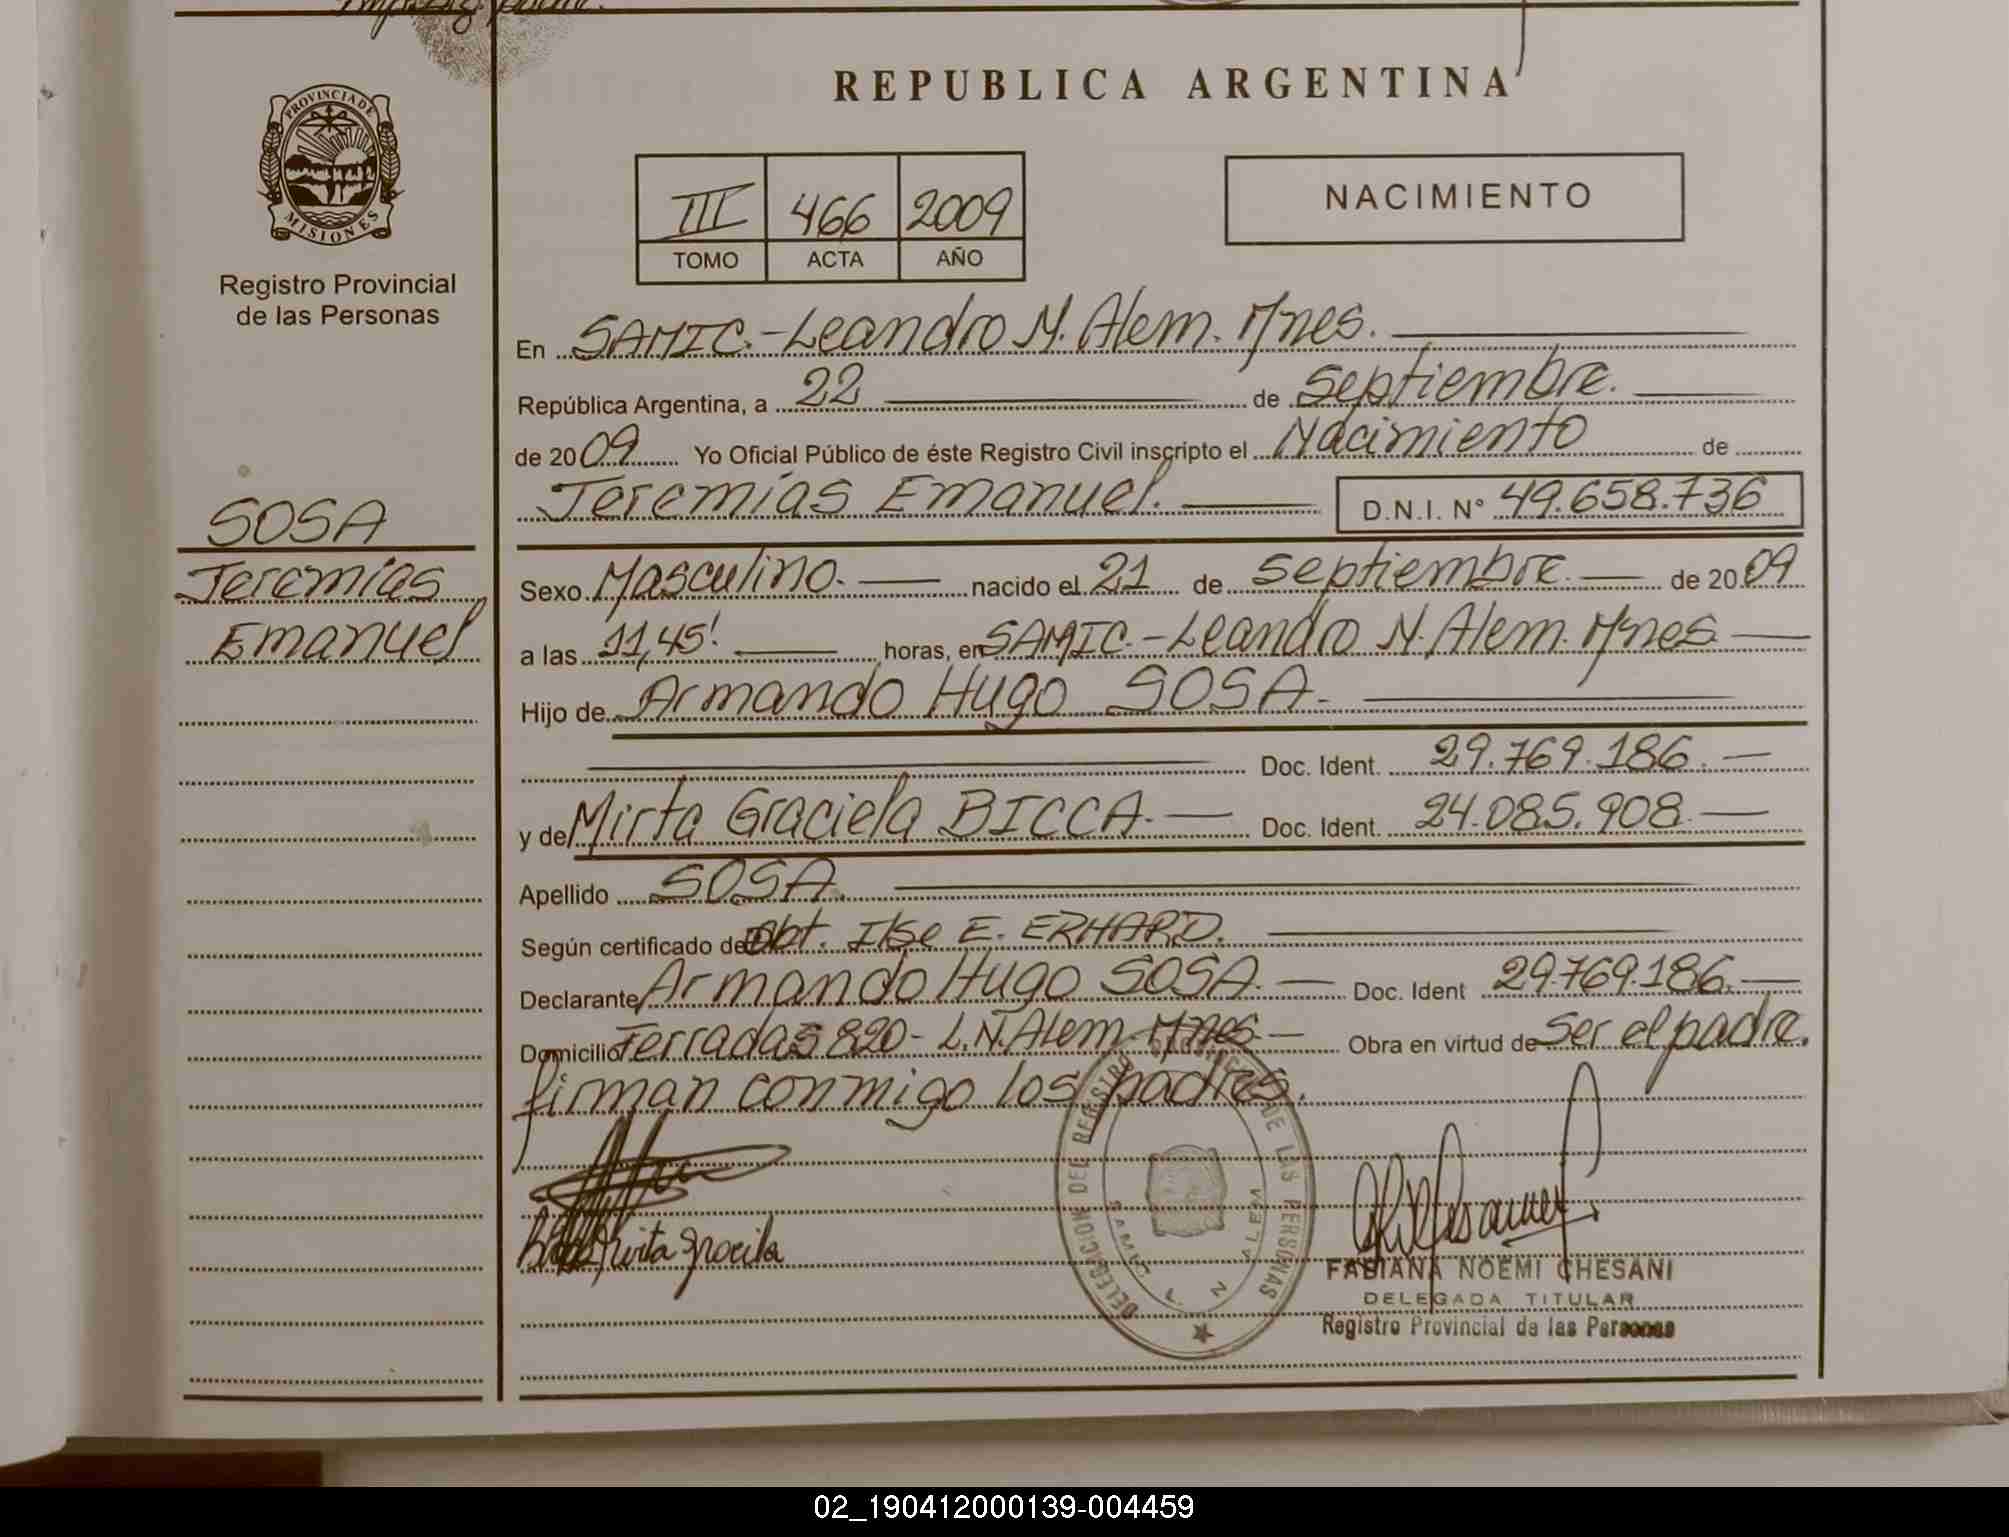 REPUBLICA ARGENTINA
PROVINCIA DE
MISIONES
Registro Provincial
de las Personas
III 466 2009
TOMO ACTA AÑO
NACIMIENTO
En SAMIC.-Leandro N. Alem. Mnes.
República Argentina, a 22 de Septiembre.
de 2009 Yo Oficial Público de éste Registro Civil inscripto el Nacimiento de
Jeremías Emanuel. D.N.I. N° 49.658.736
SOSA
Jeremías
Emanuel
Sexo Masculino. nacido el 21 de Septiembre. de 2009
a las 11,45' horas, en SAMIC.-Leandro N. Alem. Mnes
Hijo de Armando Hugo SOSA.
Doc. Ident. 29.769.186.
y de Mirta Graciela BICCA. Doc. Ident. 24.085.908
Apellido SOSA.
Según certificado de Obt. Ilse E. ERHARD.
Declarante Armando Hugo SOSA. Doc. Ident 29.769.186.
Domicilio Terradas 820- L.N.Alem. Mnes Obra en virtud de Ser el padre.
firman conmigo los padres.
DELEGACION DEL REGISTRO DE LAS PERSONAS
SAMIC L. N ALEM
FABIANA NOEMI CHESANI
DELEGADA TITULAR
Registro Provincial de las Personas
02_190412000139-004459